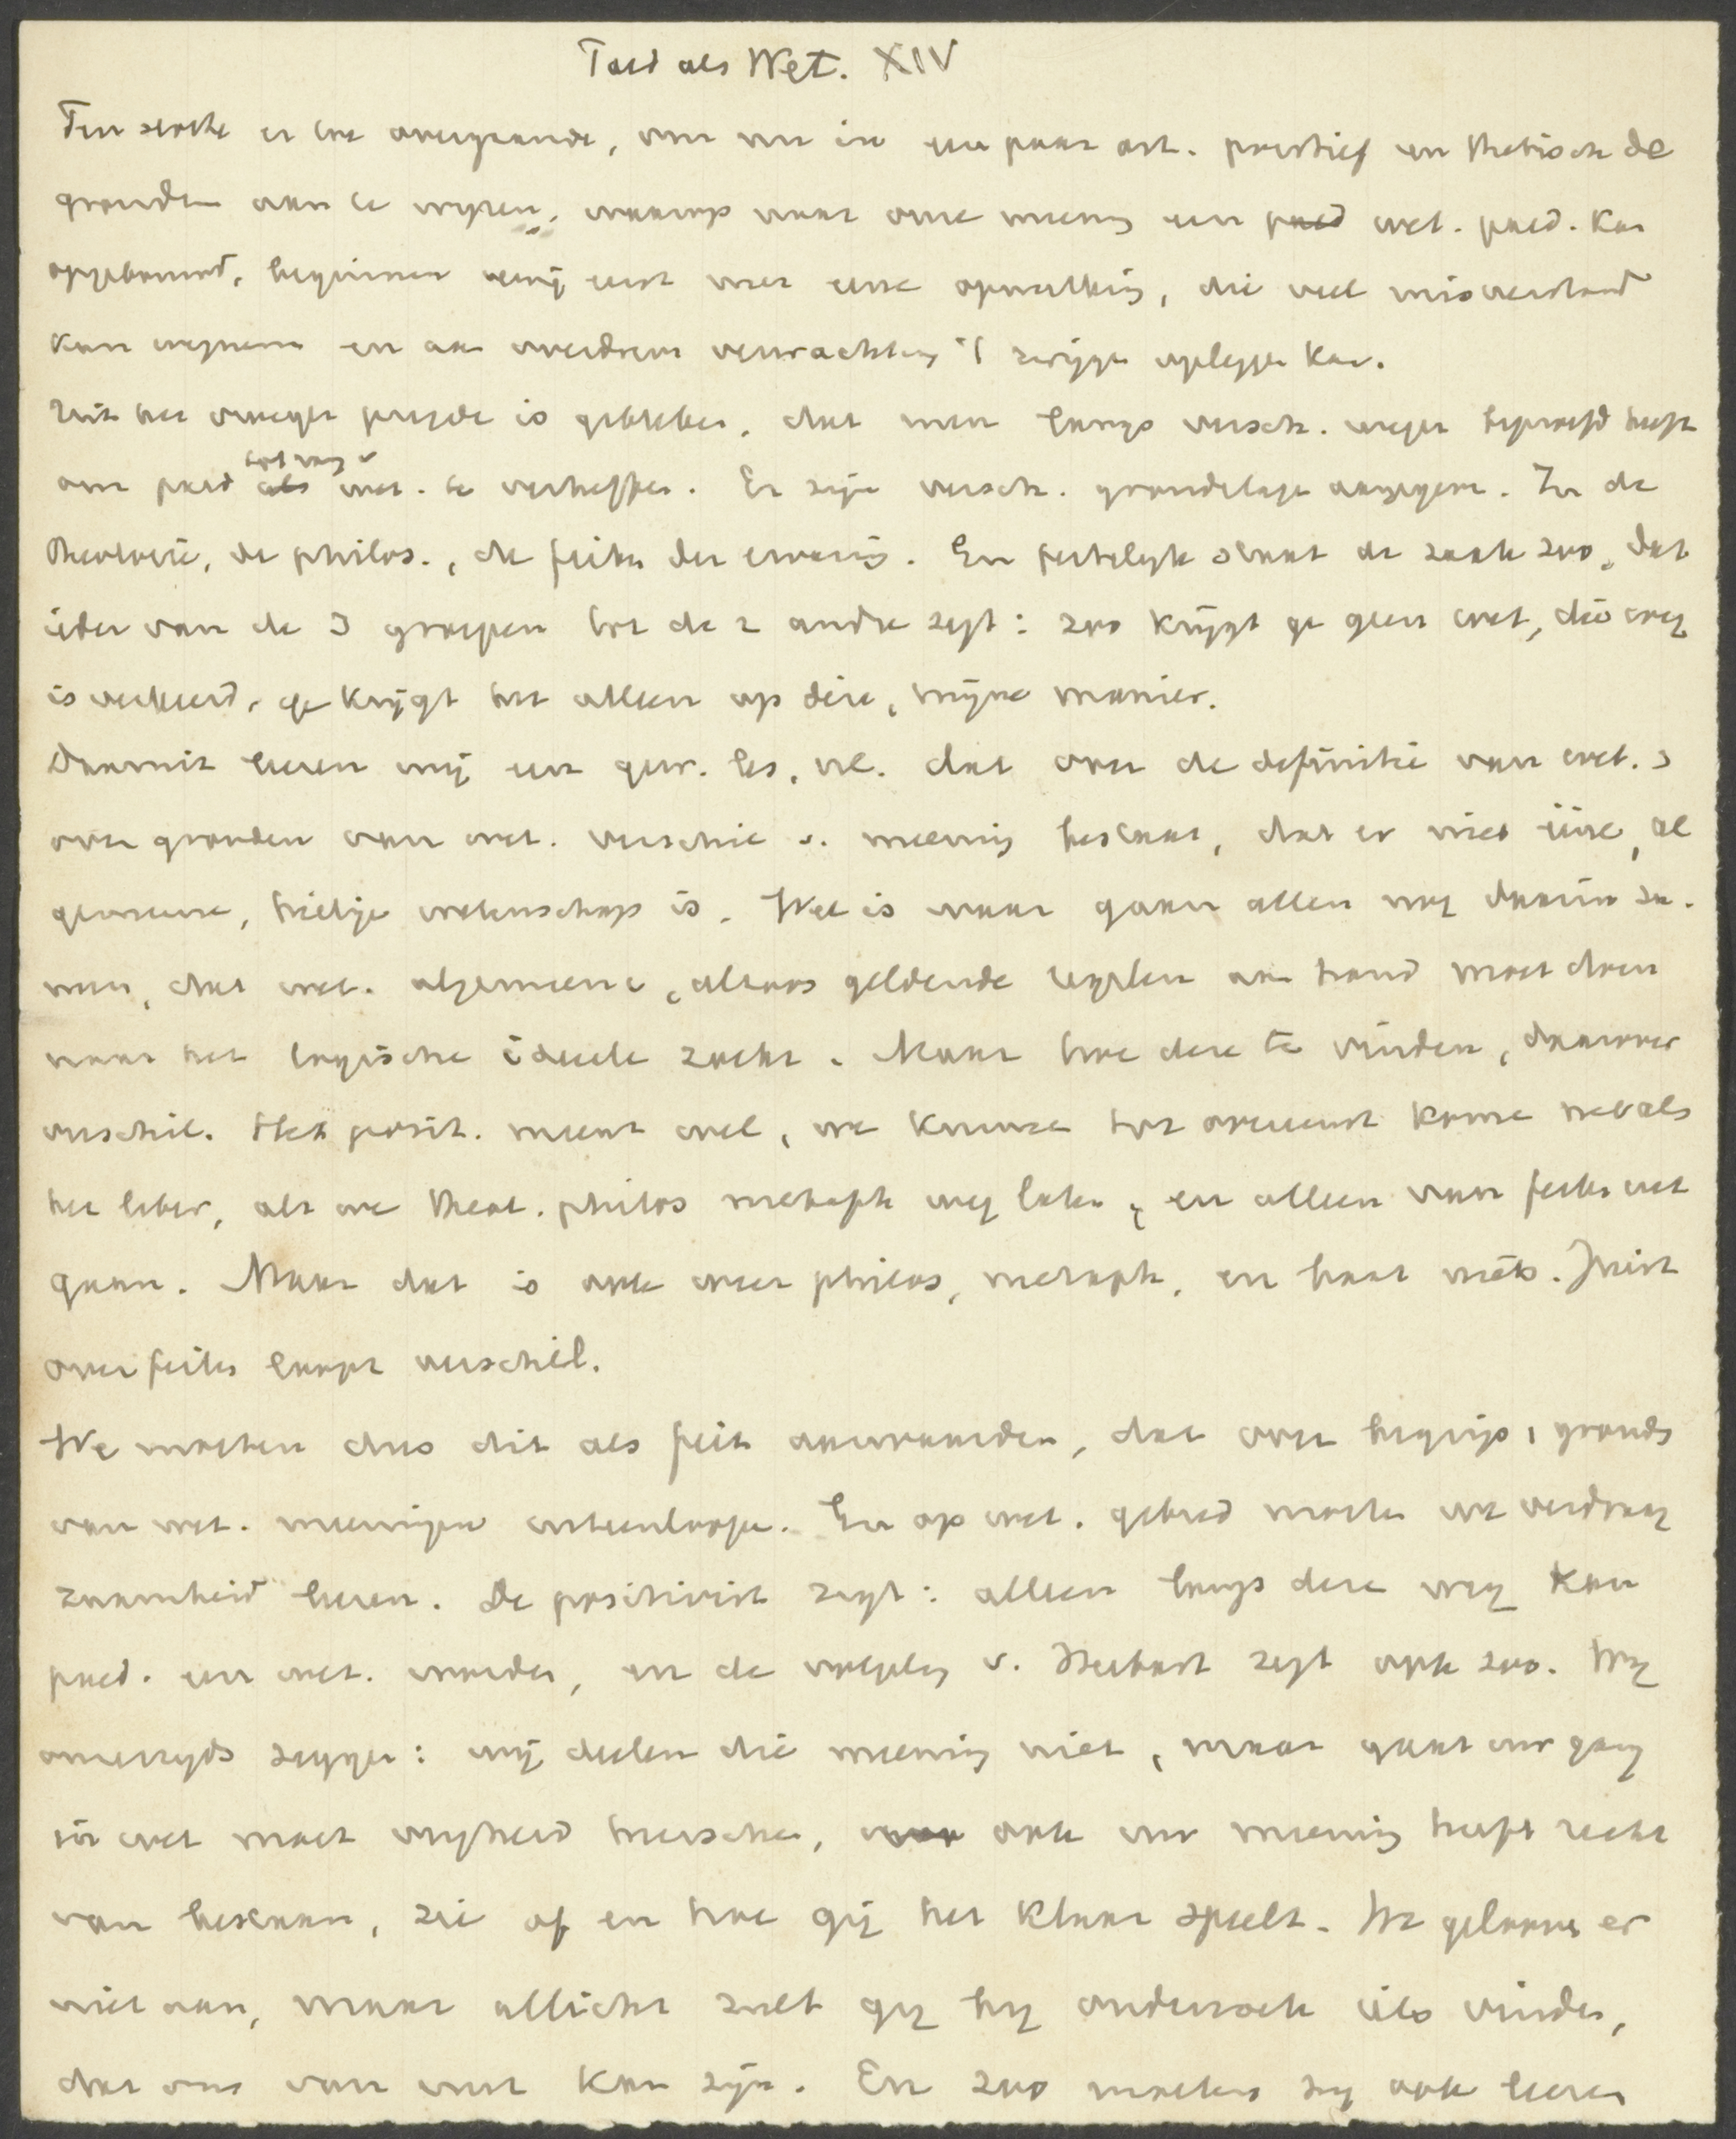 Paed als Wet. XIV
Ten slotte er toe overgaande, om nu in een paar art. positief en thetisch de
gronden aan te wijzen, waarop naar onze meening een paed wet. paed. kan
opgebouwd, beginnen wij eerst met eene opmerking, die veel misverstand
kan wegnemen en aan overdreven verwachting 't zwijgen opleggen kan.
Uit het vroeger gezegde is gebleken, dat men langs versch. wegen beproefd heeft
om paed als tot rang v wet. te verheffen. Er zijn versch. grondslagen aangegeven. In de
theologie, de philos., de feiten der ervaring. En feitelijk staat de zaak zoo, dat
ieder van de 3 groepen tot de 2 andre zegt: zoo krijgt ge geen wet, die weg
is verkeerd, ge krijgt het alleen op deze, mijne manier.
Daaruit leeren wij een gew. les, nl. dat over de definitie van wet.
over gronden van wet. verschil v. meening bestaat, dat er niet ééne, al
gemeene, heilige wetenschap is. Wel is waar gaan allen nog daarin sa-
men, dat wet. algemeene, altoos geldende regelen aan hand moet doen
naar het logische ideele zoekt. Maar hoe deze te vinden, daarover
verschil. Het posit. meent wel, we kunnen tot overeenst komen net als
het liber, als we theol. philos metaph weg laten, en alleen van feiten uit
gaan. Maar dat is ook weer philos, metaph, en baat niets. Juist
over feiten loopt verschil.
We moeten dus dit als feit aanvaarden, dat over begrip, gronds
van wet. meeningen uiteenloopen. En op wet. gebied moeten we verdraag
zaamheid leeren. De positivist zegt: alleen langs deze weg kan
paed. een wet. worden, en de volgeling v. Herbart zegt ook zoo. Wij
onzerzijds zeggen: wij deelen die meening niet, maar gaat uw gang
in wet moet vrijheid heerschen, ook uw meening heeft recht
van bestaan, zie of en hoe gij het klaar speelt. We gelooven er
niet aan, maar allicht zult gij bij onderzoek iets vinden,
dat ons van nut kan zijn. En zoo moeten zij ook leeren